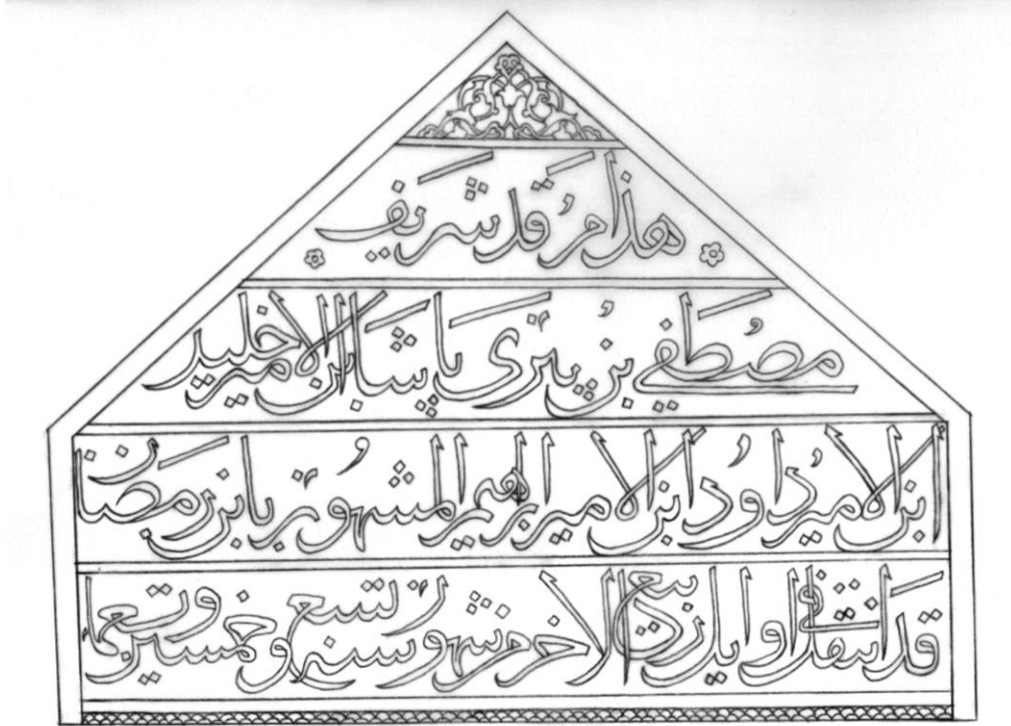 هذا مرقد شريف
مصطفي بن پيرى پاشا ابن الامير خليل
ابن الامير داود ابن الامير ابراهيم المشهور بابن رمضان
قد انتقل في اوايل ربيع الاخر من شهور سنه تسع وخمسين وتسعمائ